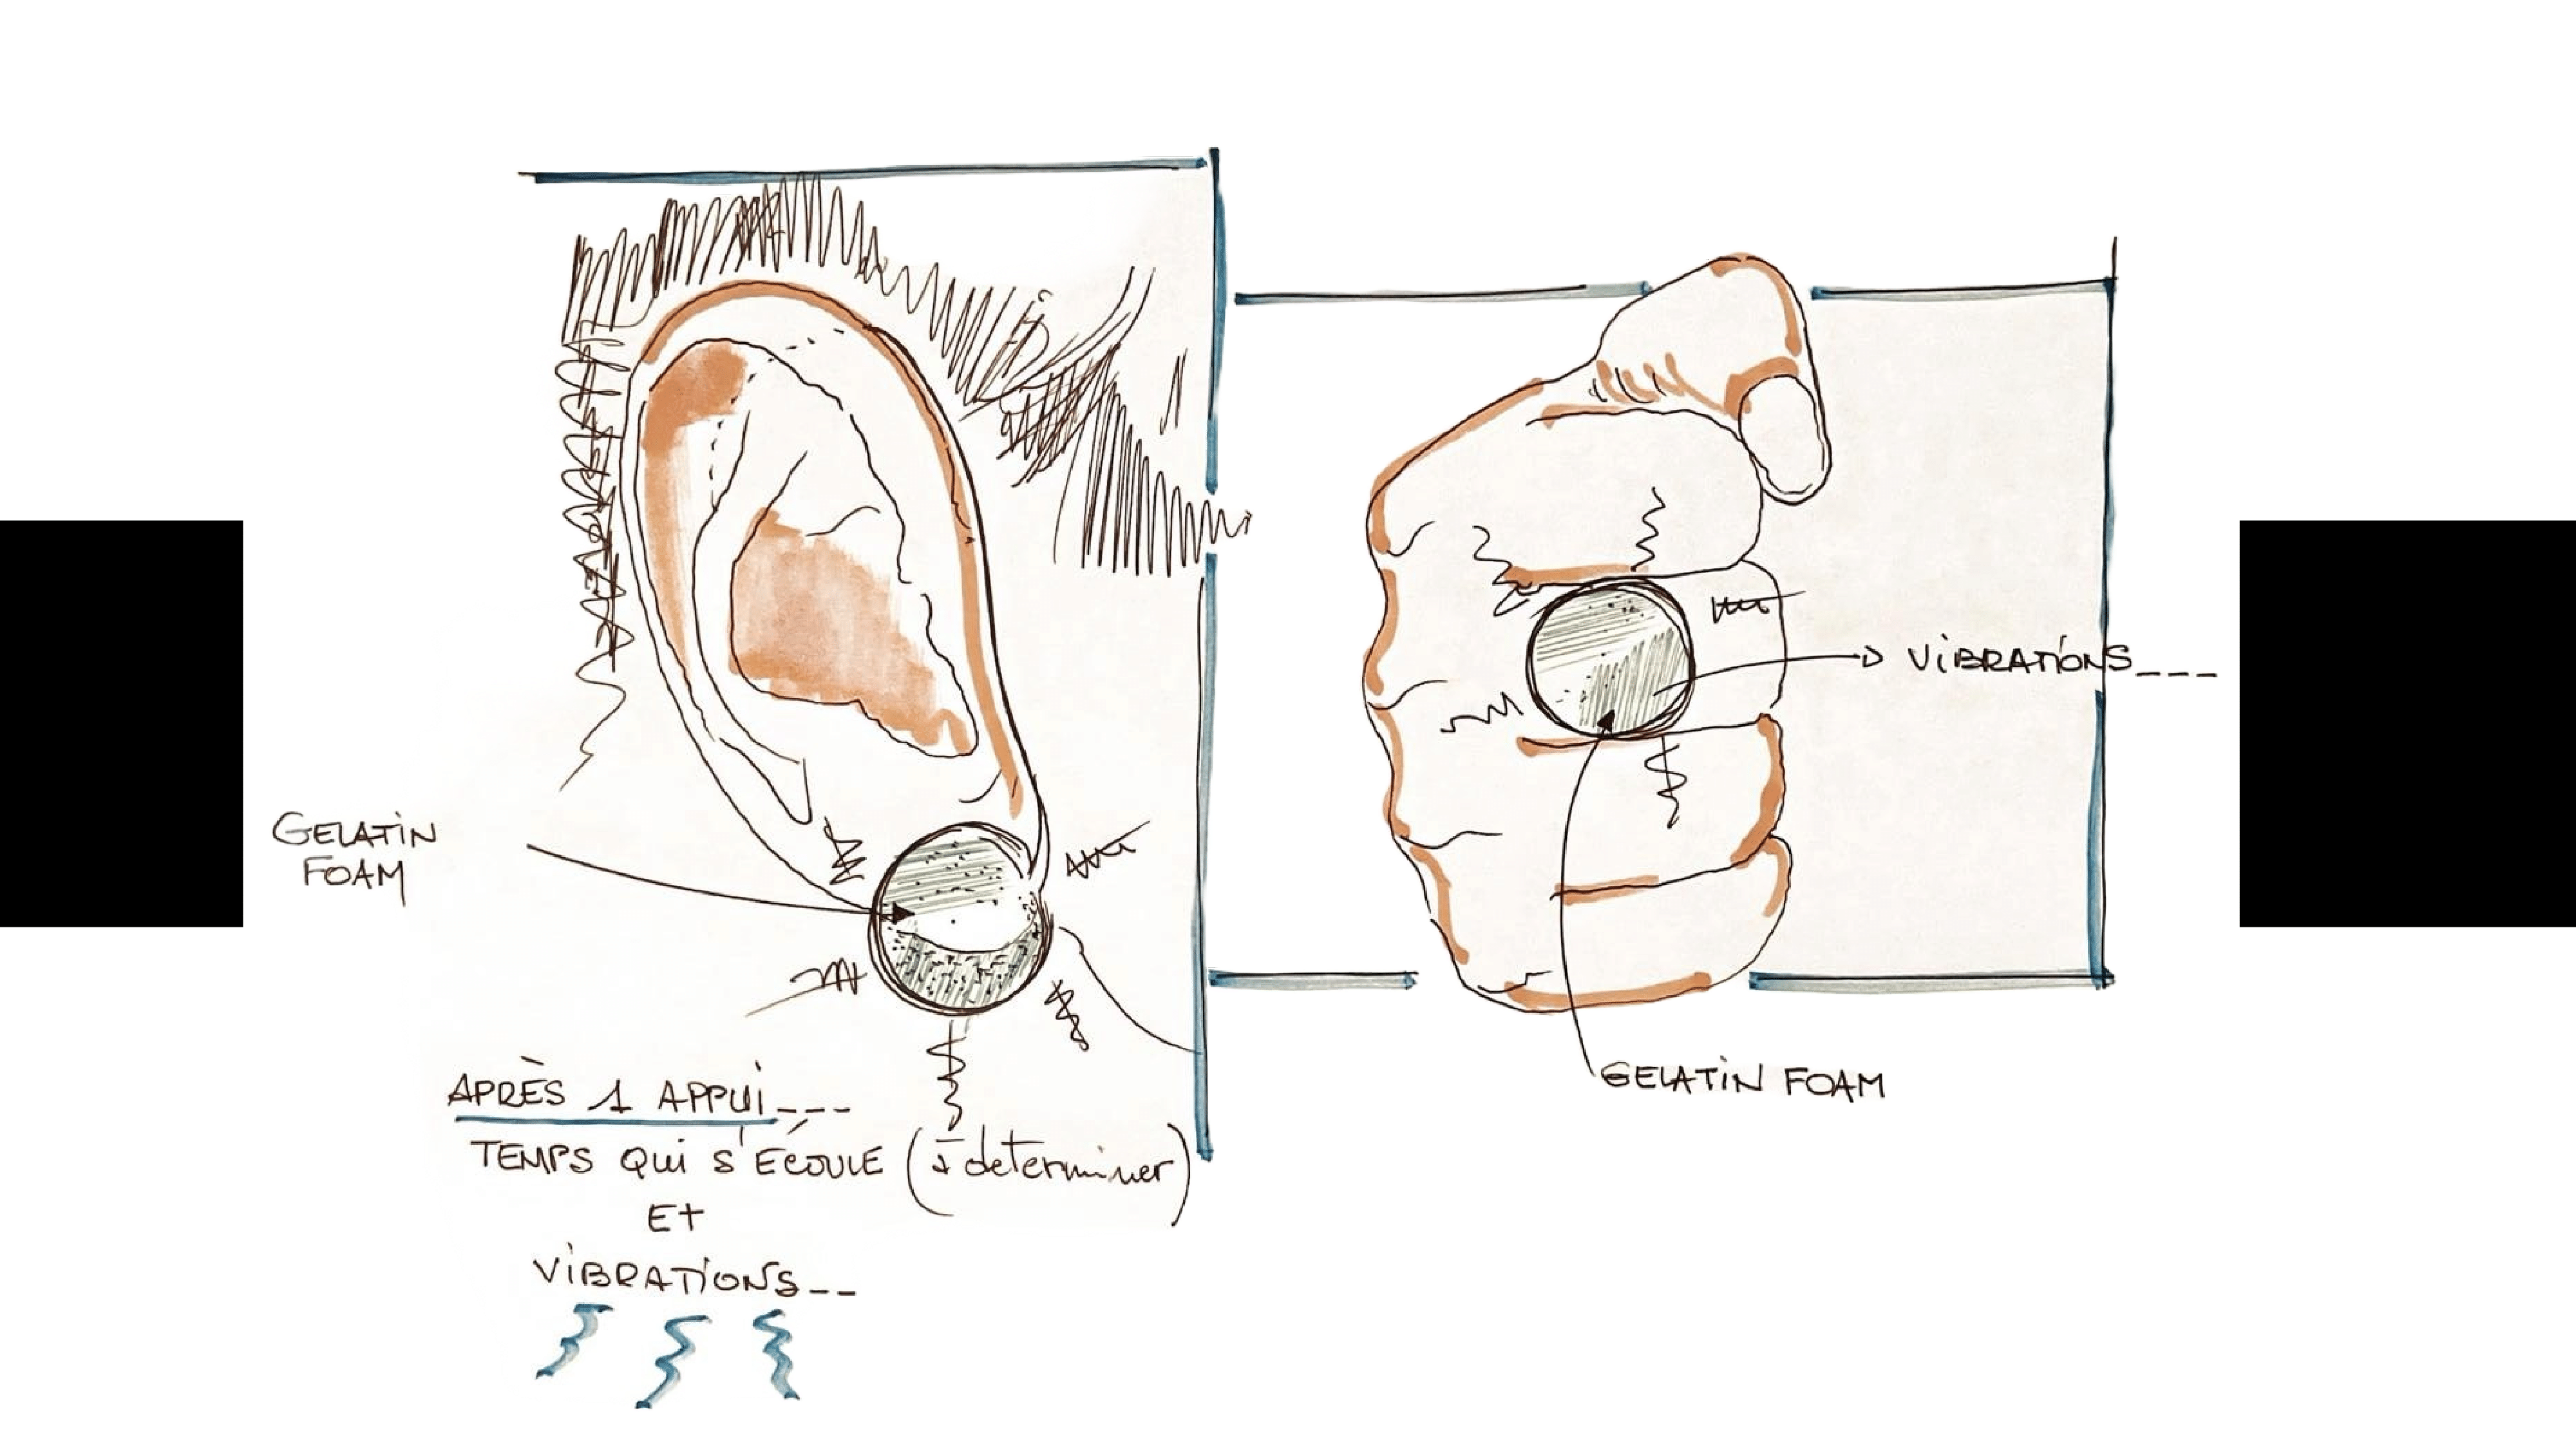 GELATIN
FOAM
APRÈS 1 APPUI---
TEMPS QUI S'ÉCOULE (à determiner)
ET
VIBRATIONS--
VIBRATIONS---
GELATIN FOAM